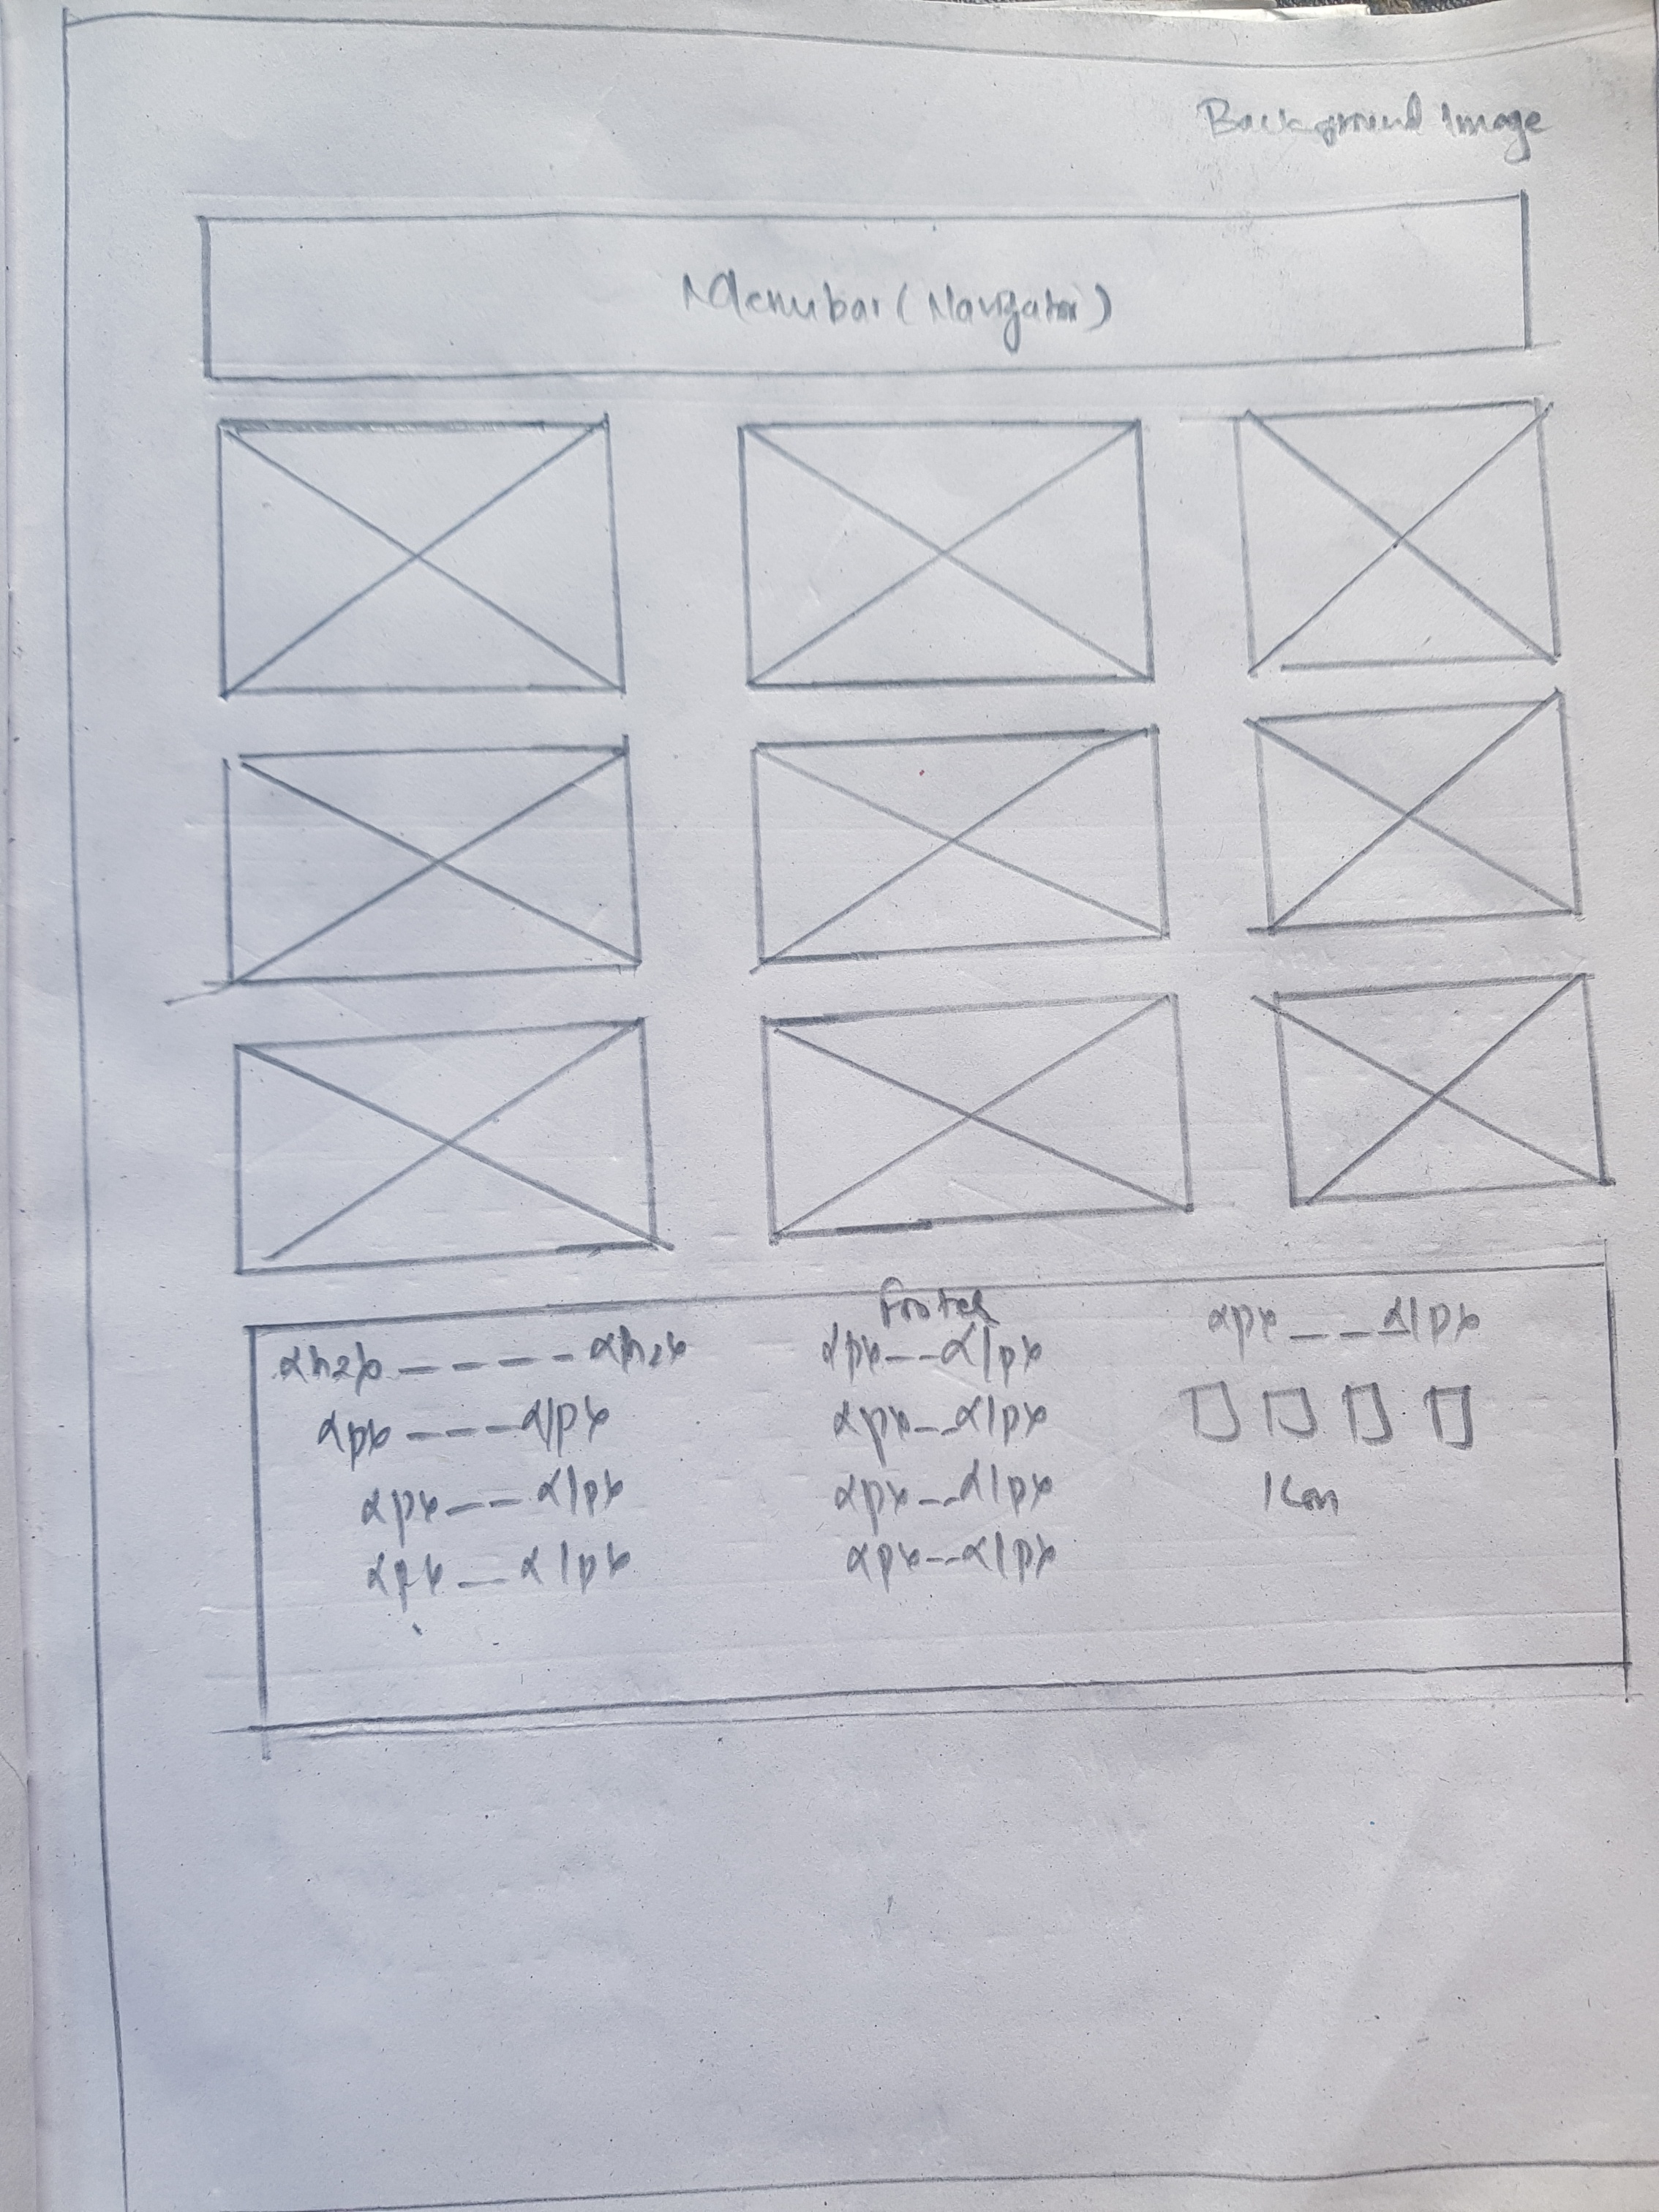 Background Image
Menubar (Navigator)
Footer
<h2> ---- <h2>
<p> --- </p>
<p> -- </p>
<p> -- </p>
<p> -- </p>
<p> -- </p>
<p> -- </p>
<p> -- </p>
<p> -- </p>
Icon